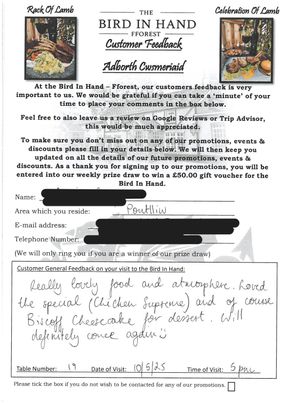 Rack Of Lamb
Celebration Of Lamb
THE
BIRD IN HAND
FFOREST
Customer Feedback
Adborth Cwsmeriaid
At the Bird In Hand – Fforest, our customers feedback is very
important to us. We would be grateful if you can take a 'minute' of your
time to place your comments in the box below.
Feel free to also leave us a review on Google Reviews or Trip Advisor,
this would be much appreciated.
To make sure you don't miss out on any of our promotions, events &
discounts please fill in your details below. We will then keep you
updated on all the details of our future promotions, events &
discounts. As a thank you for signing up to our promotions, you will be
entered into our weekly prize draw to win a £50.00 gift voucher for the
Bird In Hand.
Name:
Area which you reside: Pontlliw
E-mail address:
Telephone Number:
(We will only ring you if you are a winner of our prize draw)
Customer General Feedback on your visit to the Bird In Hand:
Really lovely food and atmosphere. Loved
the special (Chicken Supreme) and of course
Biscoff Cheesecake for dessert. Will
definitely come again
Table Number: 19 Date of Visit: 10/5/25 Time of Visit: 5pm
Please tick the box if you do not wish to be contacted for any of our promotions.